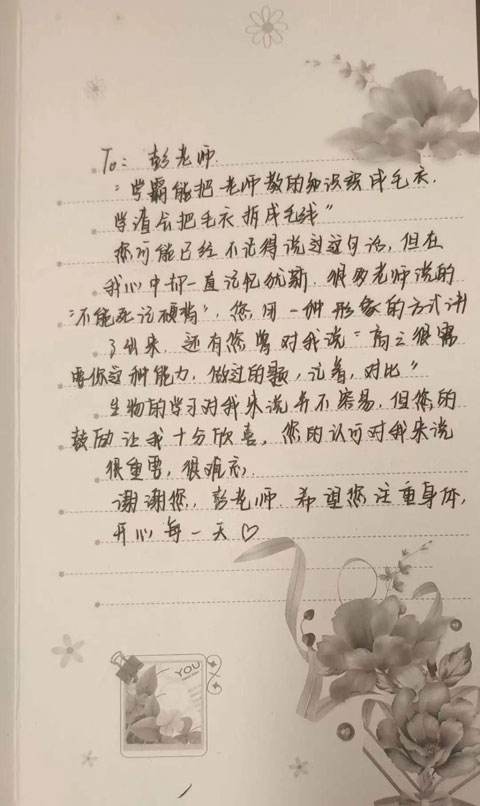 To: 彭老师.
“学霸能把老师教的知识织成毛衣,
学渣会把毛衣拆成毛线”
您可能已经不记得说过这句话, 但在
我心中却一直记忆犹新. 很多老师说的
“不能死记硬背”, 您, 用一种形象的方式讲
了出来. 还有您曾对我说“高三很需
要你这种能力. 做过的题, 记着, 对比”
生物的学习对我来说并不容易, 但您的
鼓励让我十分欣喜. 您的认可对我来说
很重要, 很难忘.
谢谢您, 彭老师. 希望您注重身体,
开心每一天♡
YOU